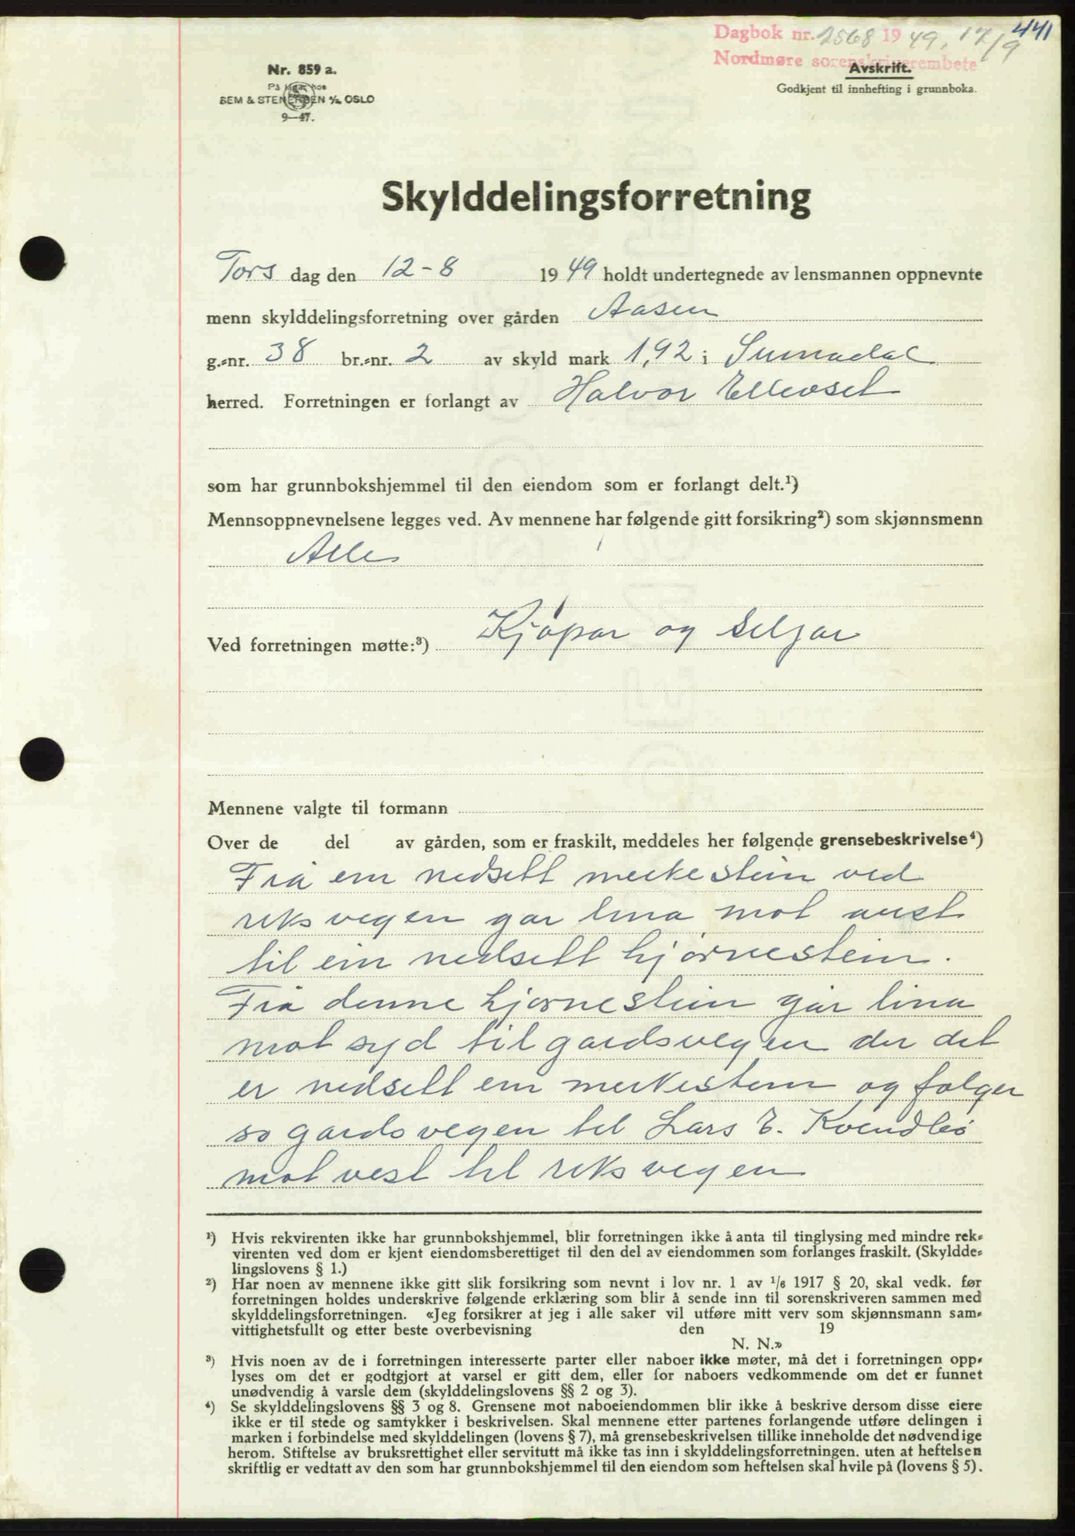 441
Dagbok nr. 2568 19 49, 17/9
Nordmøre sorenskriverembete
Nr. 859 a.
På lager hos
SEM & STENERSEN A/S OSLO
9—47.
Avskrift.
Godkjent til innhefting i grunnboka.
Skylddelingsforretning
Tors dag den 12-8 1949 holdt undertegnede av lensmannen oppnevnte
menn skylddelingsforretning over gården Aasen
g.-nr. 38 br.-nr. 2 av skyld mark 1,92 i Surnadal
herred. Forretningen er forlangt av Halvor Ellevset
som har grunnbokshjemmel til den eiendom som er forlangt delt.¹)
Mennsoppnevnelsene legges ved. Av mennene har følgende gitt forsikring²) som skjønnsmenn
Alle
Ved forretningen møtte:³) Kjøpar og Seljar
Mennene valgte til formann
Over de del av gården, som er fraskilt, meddeles her følgende grensebeskrivelse⁴)
Frå ein nedsett merkestein ved
riksvegen går lina mot aust
til ein nedsett hjørnestein.
Frå denne hjørnestein går lina
mot syd til gardsvegen der det
er nedsett ein merkestein og følger
so gardsvegen til Lars E. Kvendbø
mot vest til riksvegen
¹) Hvis rekvirenten ikke har grunnbokshjemmel, blir forretningen ikke å anta til tinglysing med mindre rek-
virenten ved dom er kjent eiendomsberettiget til den del av eiendommen som forlanges fraskilt. (Skyldde-
lingslovens § 1.)
²) Har noen av mennene ikke gitt slik forsikring som nevnt i lov nr. 1 av 1/6 1917 § 20, skal vedk. før
forretningen holdes underskrive følgende erklæring som blir å sende inn til sorenskriveren sammen med
skylddelingsforretningen. «Jeg forsikrer at jeg i alle saker vil utføre mitt verv som skjønnsmann sam-
vittighetsfullt og etter beste overbevisning den 19
N. N.»
³) Hvis noen av de i forretningen interesserte parter eller naboer ikke møter, må det i forretningen opp-
lyses om det er godtgjort at varsel er gitt dem, eller for naboers vedkommende om det er funnet
unødvendig å varsle dem (skylddelingslovens §§ 2 og 3).
⁴) Se skylddelingslovens §§ 3 og 8. Grensene mot naboeiendommen blir ikke å beskrive dersom disse eiere
ikke er til stede og samtykker i beskrivelsen. Skal mennene etter partenes forlangende utføre delingen i
marken i forbindelse med skylddelingen (lovens § 7), må grensebeskrivelsen tillike inneholde det nødvendige
herom. Stiftelse av bruksrettighet eller servitutt må ikke tas inn i skylddelingsforretningen, uten at heftelsen
skriftlig er vedtatt av den som har grunnbokshjemmel til den eiendom som heftelsen skal hvile på (lovens § 5).